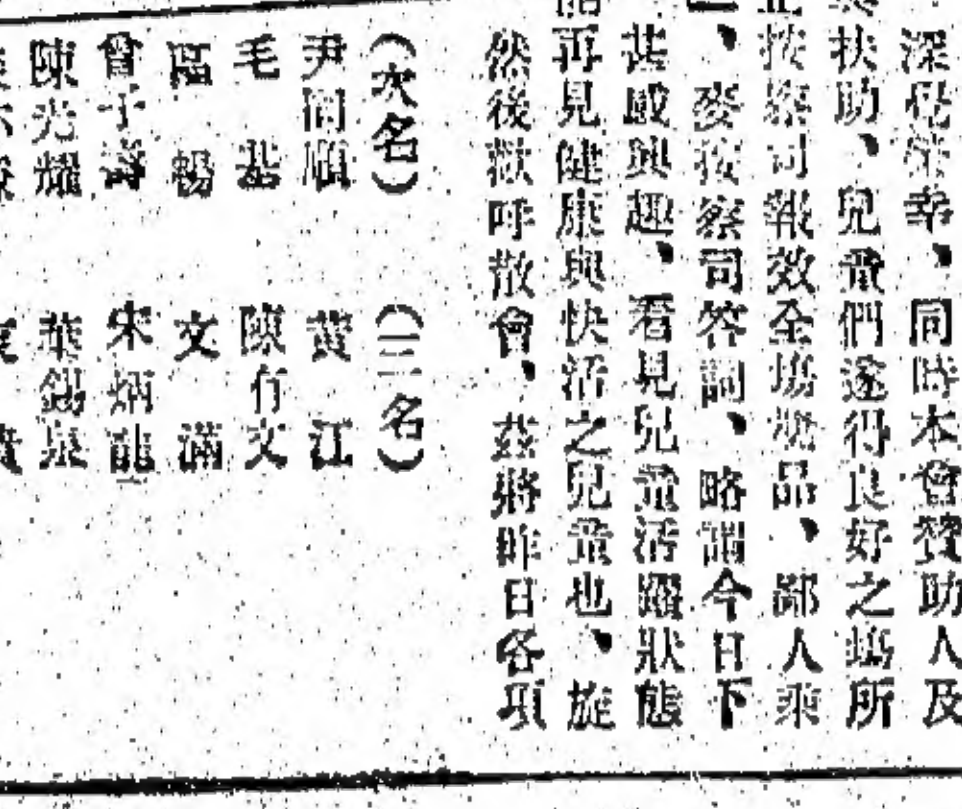 深覺榮幸、同時本會贊助人及
扶助、兒童們遂得良好之場所
按察司報效全場獎品、鄙人乘
、麥按察司答詞、略謂今日下
甚感興趣、看見兒童活躍狀態
再見健康與快活之兒童也、旋
然後歡呼散會、茲將昨日各項
(次名) (三名)
尹間順 黃江
毛基 陳有文
區暢 文滿
曾子壽 宋炳龍
陳光耀 葉錫泉